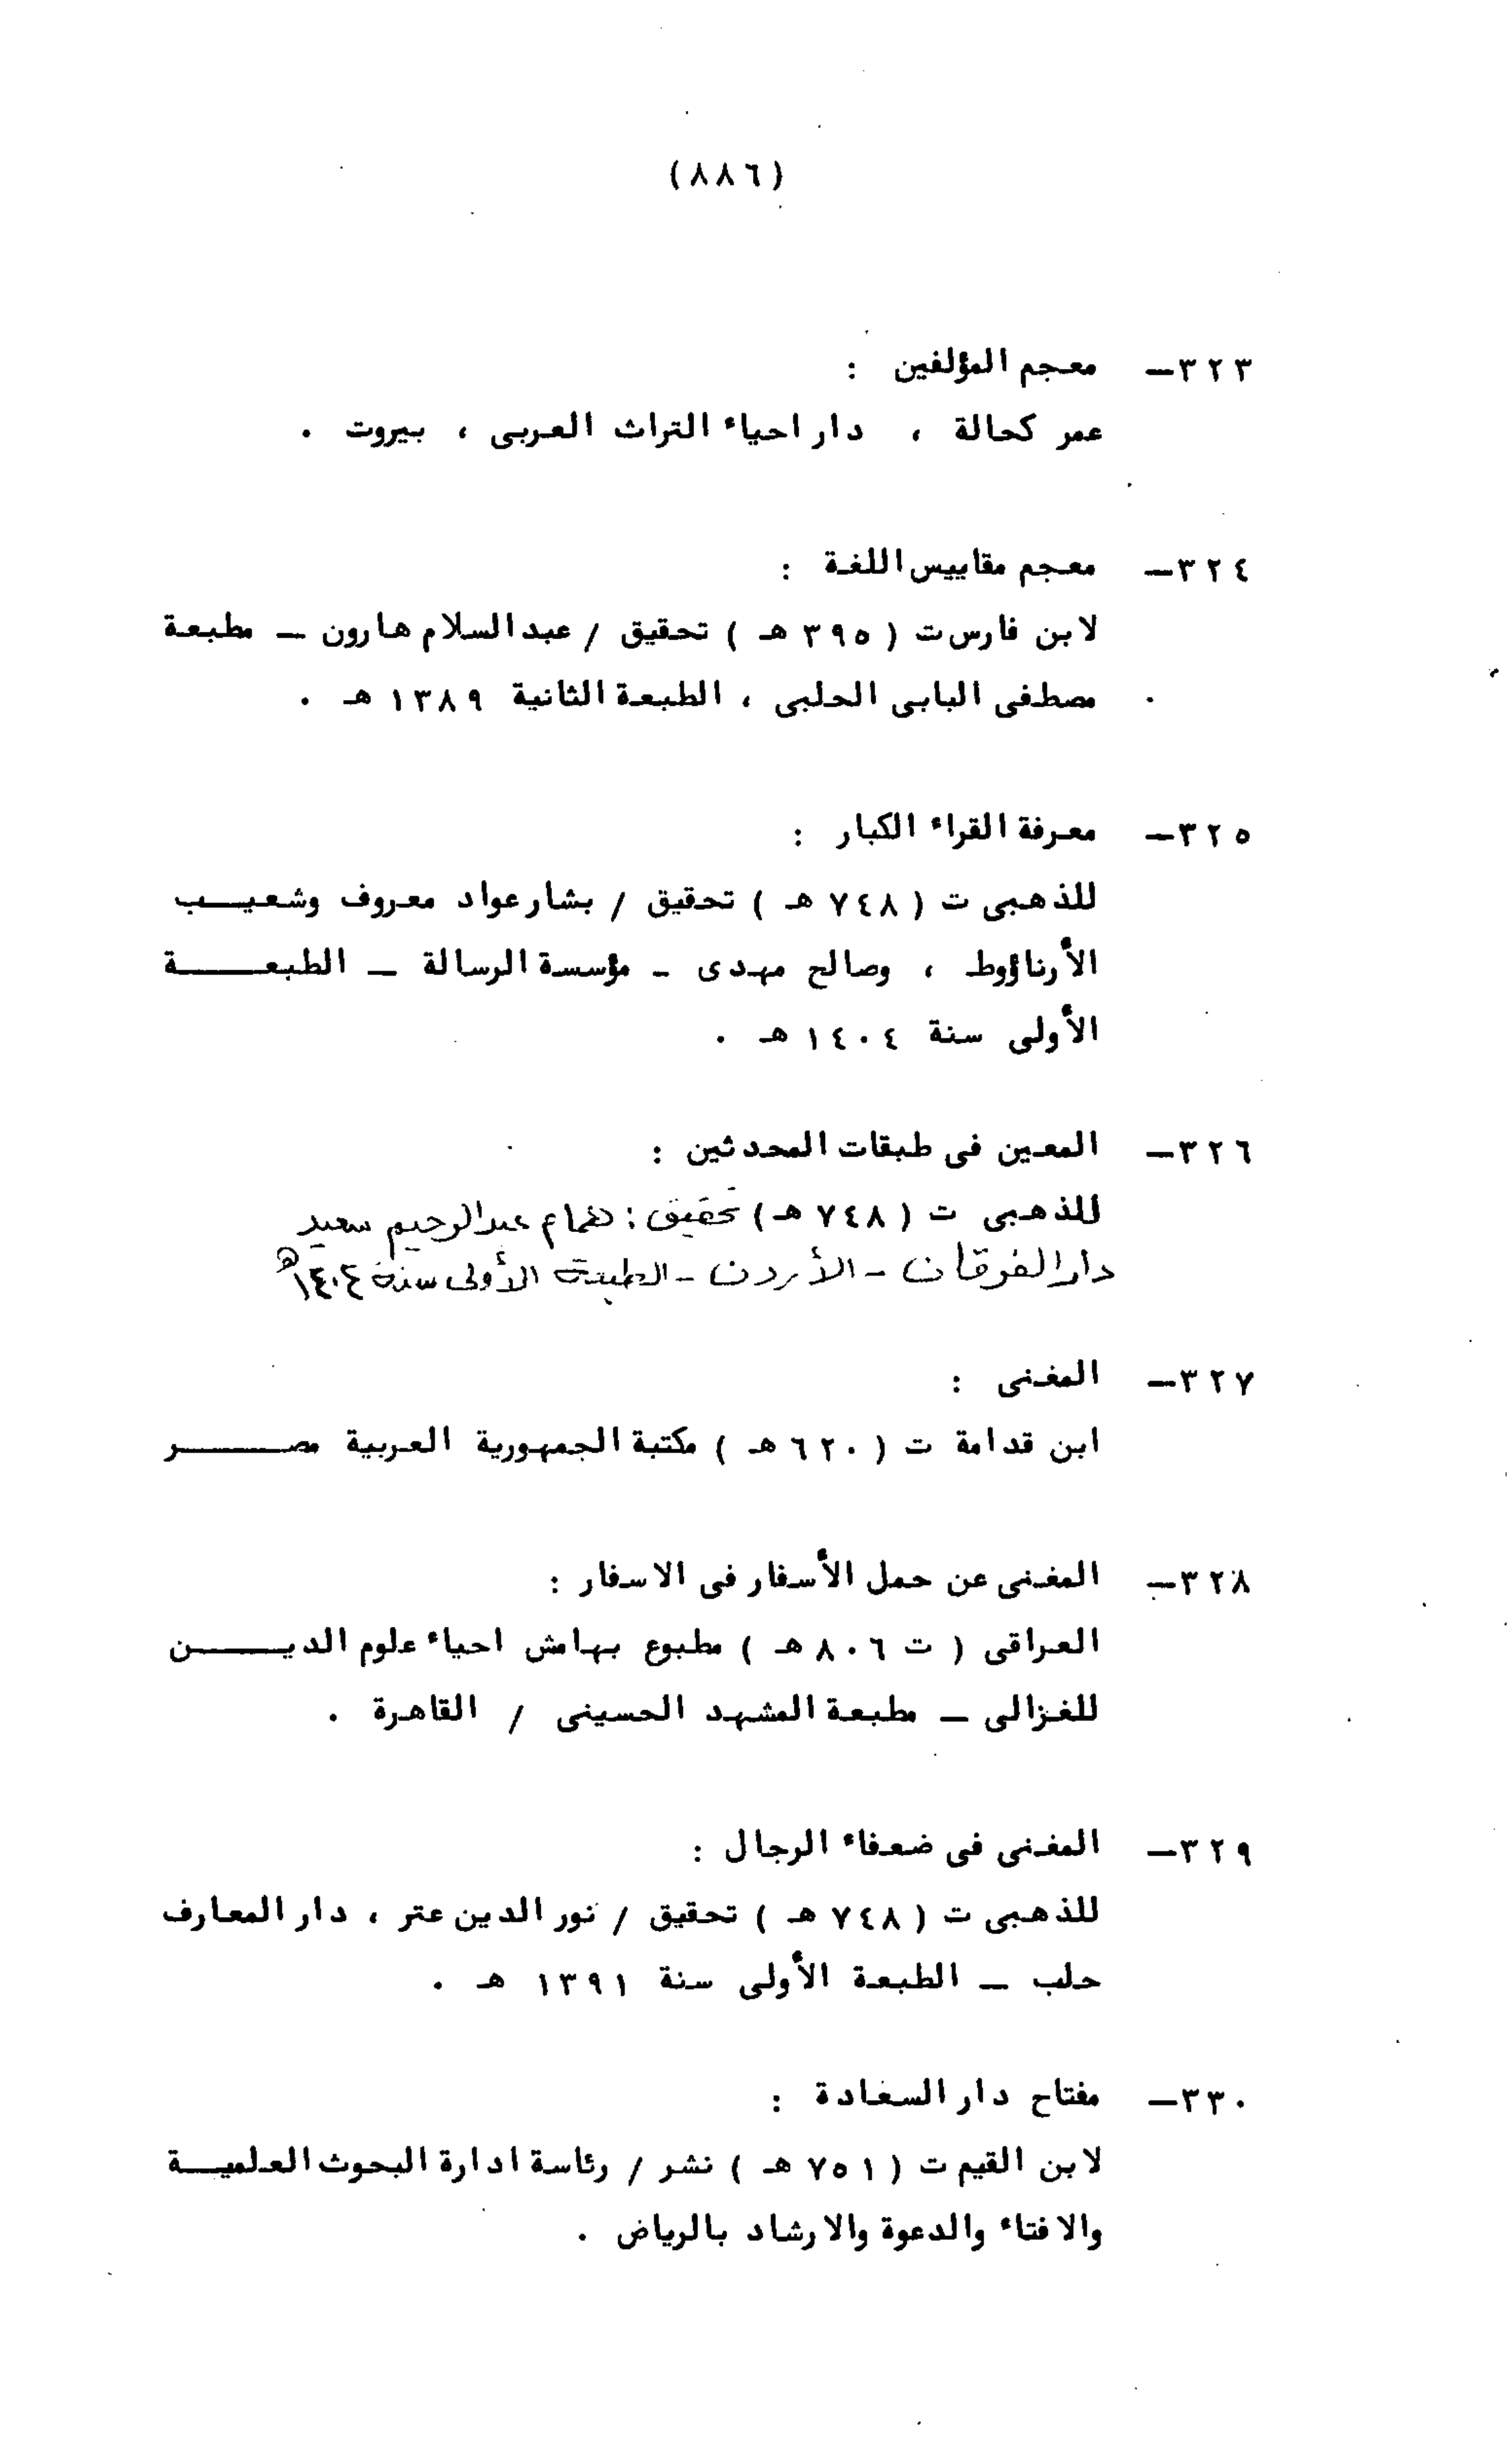 (٨٨٦)
٣٢٣ــ معجم المؤلفين :
عمر كحالة ، دار احياء التراث العربى ، بيروت .
٣٢٤ــ معجم مقاييس اللغة :
لابن فارس ت ( ٣٩٥ هـ ) تحقيق / عبد السلام هارون ــ مطبعة
مصطفى البابى الحلبى ، الطبعة الثانية ١٣٨٩ هـ .
٣٢٥ــ معرفة القراء الكبار :
للذهبى ت ( ٧٤٨ هـ ) تحقيق / بشار عواد معروف وشعيـــب
الأرناؤوط ، وصالح مهدى ـ مؤسسة الرسالة ــ الطبعـــــة
الأولى سنة ١٤٠٤ هـ .
٣٢٦ــ المعين فى طبقات المحدثين :
للذهبى ت ( ٧٤٨ هـ ) تحقيق : همام عبدالرحيم سعيد
دار الفرقان - الأردن - الطبعة الأولى سنة ١٤٠٤هـ
٣٢٧ــ المغنى :
ابن قدامة ت ( ٦٢٠ هـ ) مكتبة الجمهورية العربية مصــــــر
٣٢٨ــ المغنى عن حمل الأسفار فى الاسفار :
العراقى ( ت ٨٠٦ هـ ) مطبوع بهامش احياء علوم الديـــــن
للغزالى ــ مطبعة المشهد الحسينى / القاهرة .
٣٢٩ــ المغنى فى ضعفاء الرجال :
للذهبى ت ( ٧٤٨ هـ ) تحقيق / نور الدين عتر ، دار المعارف
حلب ــ الطبعة الأولى سنة ١٣٩١ هـ .
٣٣٠ــ مفتاح دار السعادة :
لابن القيم ت ( ٧٥١ هـ ) نشر / رئاسة ادارة البحوث العلميـــة
والافتاء والدعوة والارشاد بالرياض .